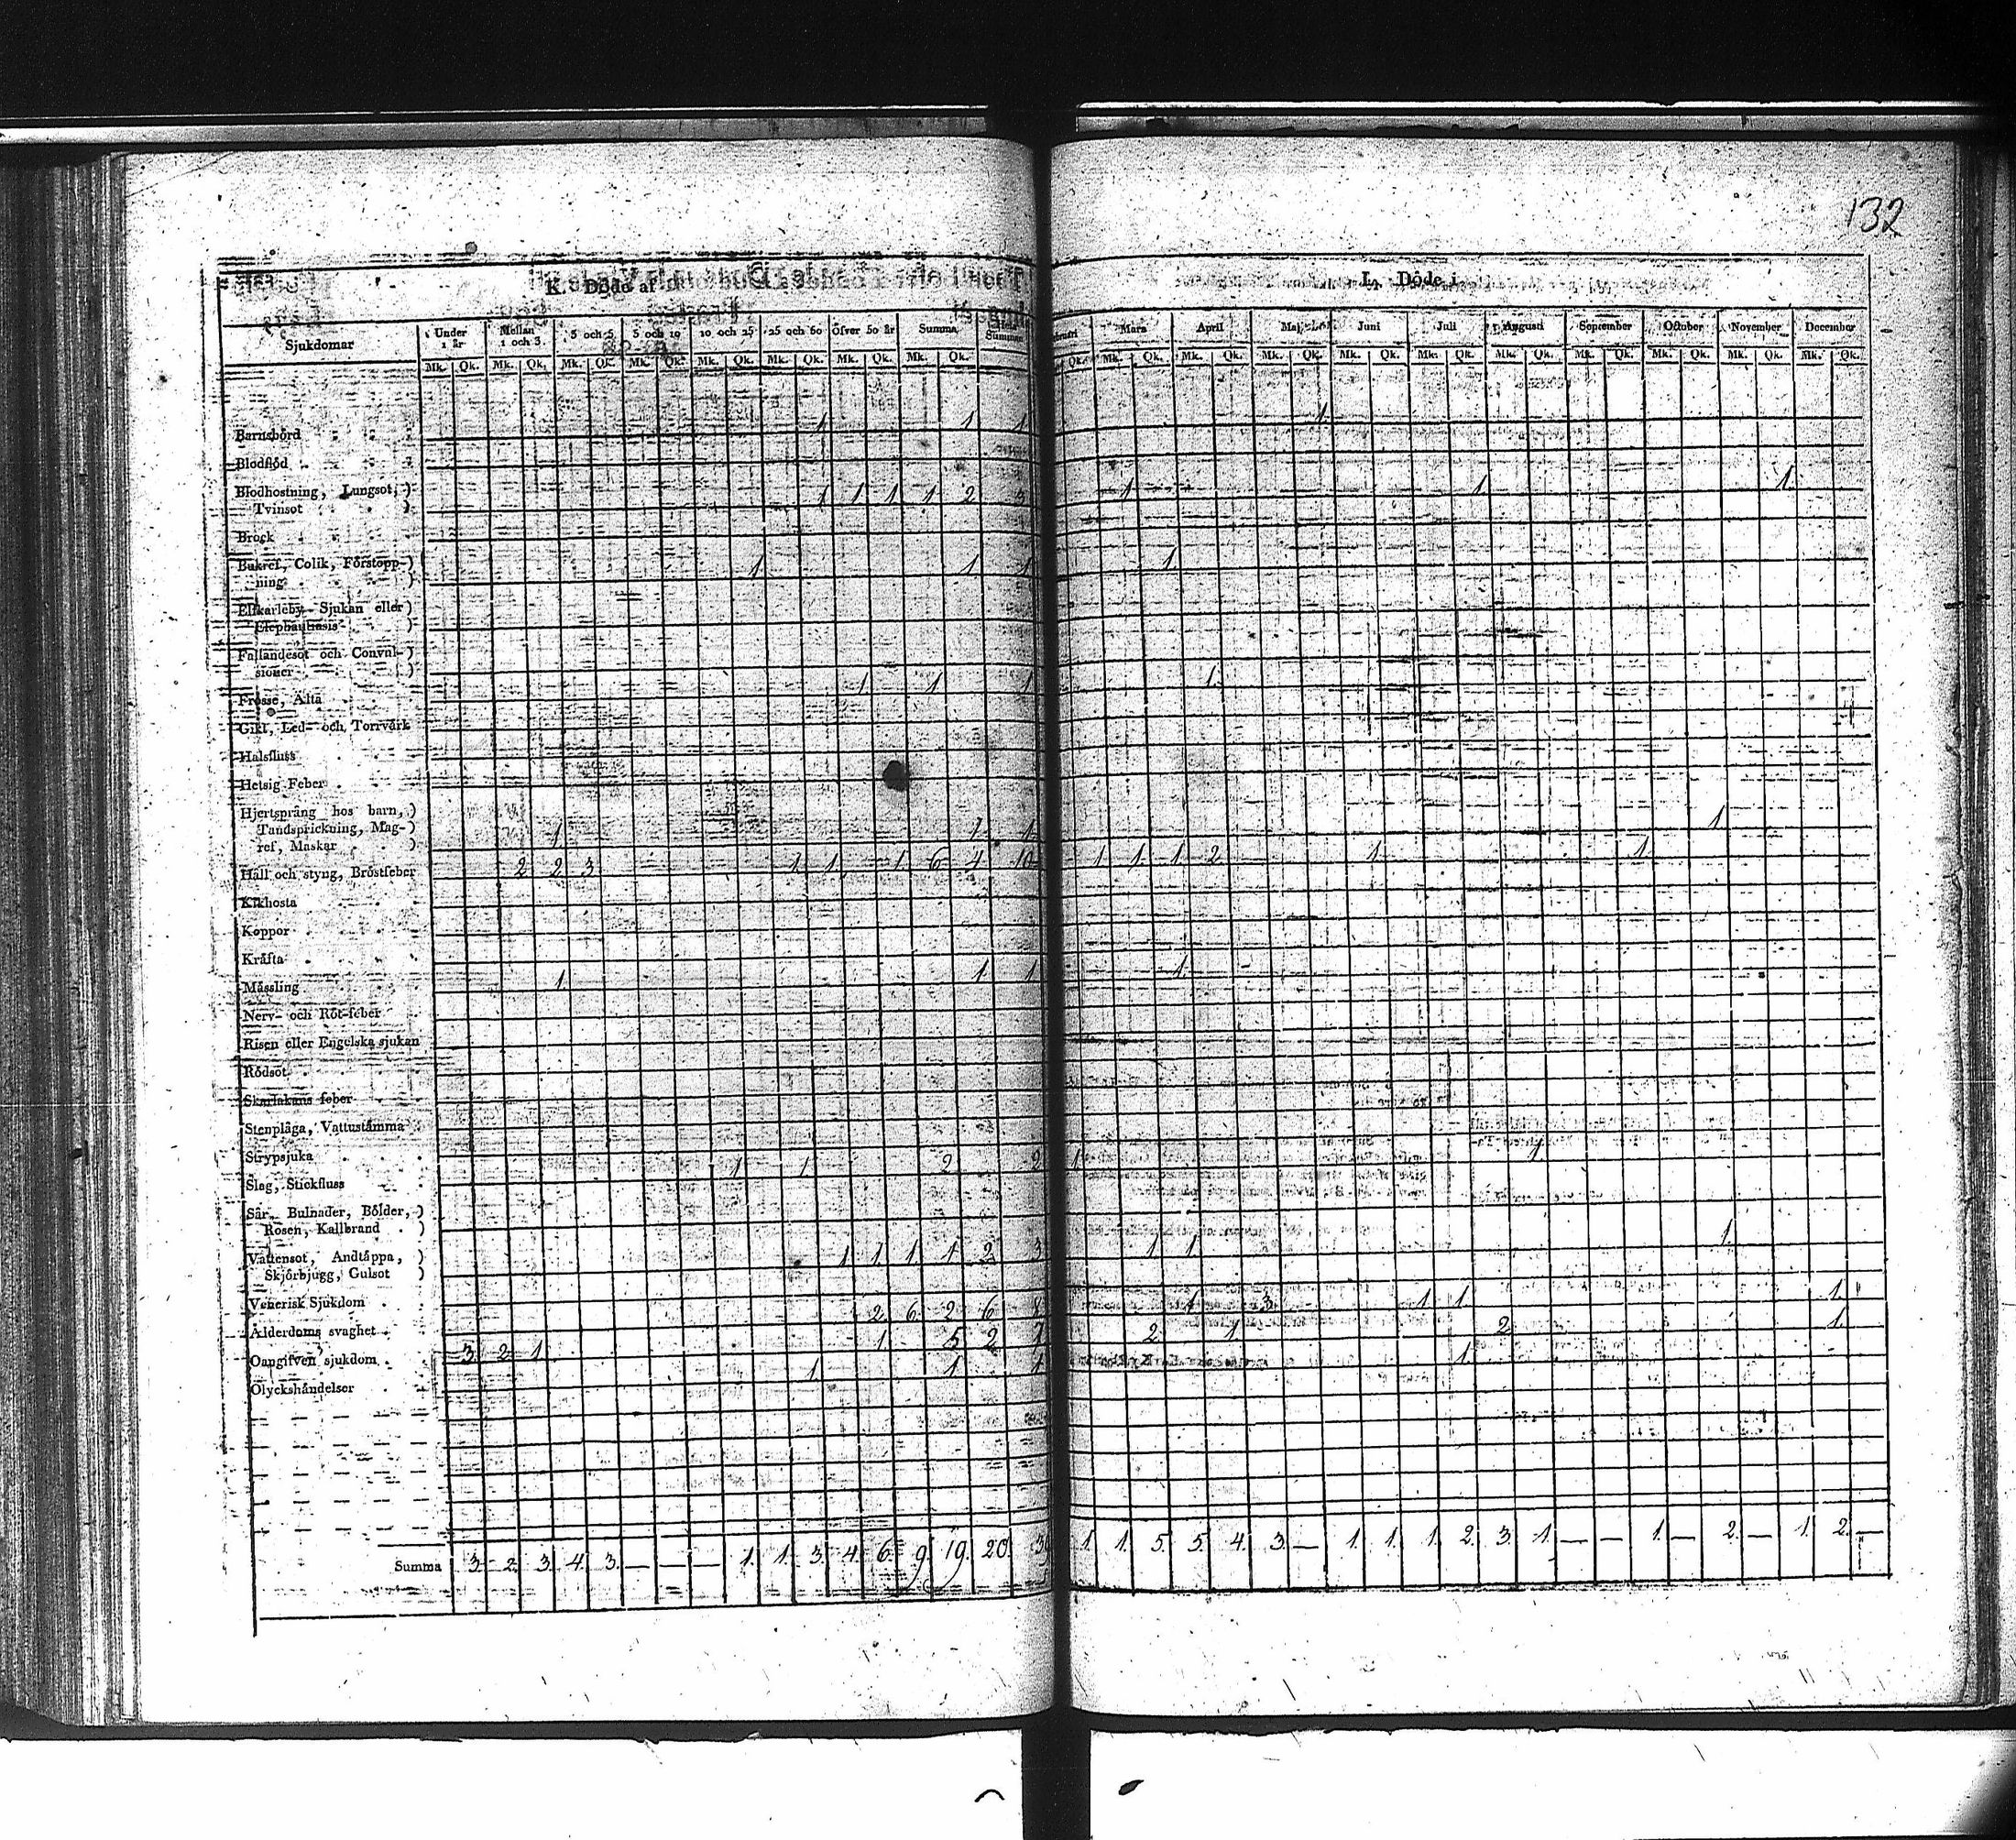 132
K. Döde af
L. Döde i
Sjukdomar Under 1 år Mellan 1 och 3. 3 och 5 5 och 10 10 och 25 25 och 50 Öfver 50 år Summa Summa Mars April Maj Juni Juli Augusti September October November December
Mk. Qk. Mk. Qk. Mk. Qk. Mk. Qk. Mk. Qk. Mk. Qk. Mk. Qk. Mk. Qk. Qk. Mk. Qk. Mk. Qk. Mk. Qk. Mk. Qk. Mk. Qk. Mk. Qk. Mk. Qk. Mk. Qk. Mk. Qk. Mk. Qk.
Barnsbörd 1 1 1 1
Blodflöd
Blodhostning, Lungsot,)
Tvinsot ) 1 1 1 1 2 3 1 1 1
Bröck
Bukref, Colik, Förstopp-)
ning ) 1 1 1 1
Elfkarleby Sjukan eller)
Elephantiasis )
Fallandesot och Convul-)
sioner )
Frosse, Älta 1 1 1 1
Gikt, Led- och Torrvärk
Halsfluss
Hetsig Feber
Hjertsprång hos barn,)
Tandsprickning, Mag-)
ref, Maskar ) 1 1 1 1
Håll och styng, Bröstfeber 2 2 3 1 1 1 6 4 10 1 1 1 2 1 1
Kikhosta
Koppor
Kräfta
Mässling 1 1 1 1
Nerv- och Röt-feber
Risen eller Engelska sjukan
Rödsot
Skarlakans feber
Stenplåga, Vattustämma
Strypsjuka
Slag, Stickfluss 1 1 2 2 1 1
Sår, Bulnader, Bölder,)
Rosen, Kallbrand )
Vattensot, Andtäppa, )
Skjörbjugg, Gulsot ) 1 1. 1. 1. 2 3 1 1 1
Venerisk Sjukdom
Ålderdoms svaghet 2 6 2 6 8 1 3 1 1 1
Oangifven sjukdom 3 2 1 1 5 2 7 2 1 2 1
Olyckshändelser 1 1 1 1
Summa 3. 2. 3. 4. 3. — — — 1. 1. 3. 4. 6. 9. 19. 20. 39 1. 1. 5. 5. 4. 3. — 1. 1. 1. 2. 3. 1. — — 1. — 2. — 1. 2. —